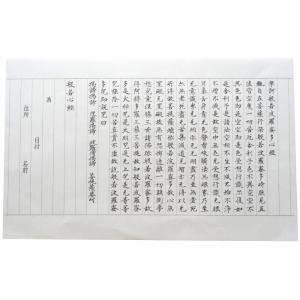 摩訶般若波羅蜜多心経
觀自在菩薩行深般若波羅蜜多時照見五
蘊皆空度一切苦厄舍利子色不異空空不
異色色即是空空即是色受想行識亦復如
是舍利子是諸法空相不生不滅不垢不淨
不增不減是故空中無色無受想行識無眼
耳鼻舌身意無色聲香味觸法無眼界乃至
無意識界無無明亦無無明盡乃至無老死
亦無老死盡無苦集滅道無智亦無得以無
所得故菩提薩埵依般若波羅蜜多故心無
罣礙無罣礙故無有恐怖遠離一切顛倒夢
想究竟涅槃三世諸佛依般若波羅蜜多故
得阿耨多羅三藐三菩提故知般若波羅蜜
多是大神呪是大明呪是無上呪是無等等
呪能除一切苦真實不虛故說般若波羅蜜
多呪即說呪曰
揭諦揭諦 波羅揭諦 波羅僧揭諦 菩提薩婆訶
般若心経
為
日付
住所 名前